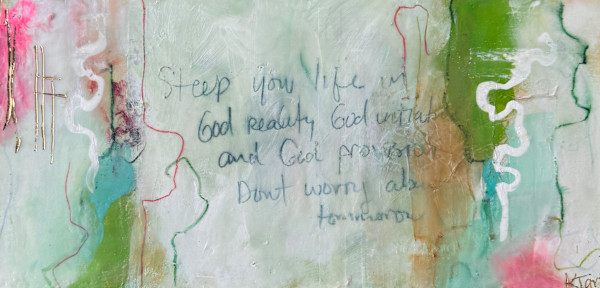 Steep you life in
God reality God initiat
and God provision
Dont worry abou
tommorow